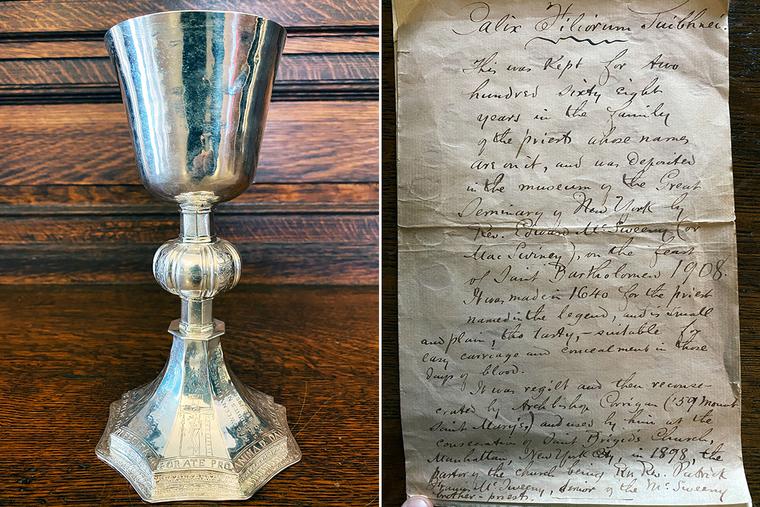 ORATE PRO
Calix Filiorum Suibhnei.
This was kept for two
hundred sixty eight
years in the family
of the priests whose names
are on it, and was deposited
in the museum of the Great
Seminary of New York by
Rev. Edward McSweeny (or
MacSwiney), on the feast
of Saint Bartholomew 1908.
It was made in 1640 for the priest
named in the legend, and is small
and plain, tho tasty, - suitable for
easy carriage and concealment in those
days of blood.
It was regilt and then reconse-
crated by Archbishop Corrigan ('59 Mount
Saint Mary's) and used by him at the
consecration of Saint Brigid's Church,
Manhattan, New York City, in 1898, the
pastor of the church being Rev. Patrick
Francis McSweeny, senior of the McSweeny
brother-priests.